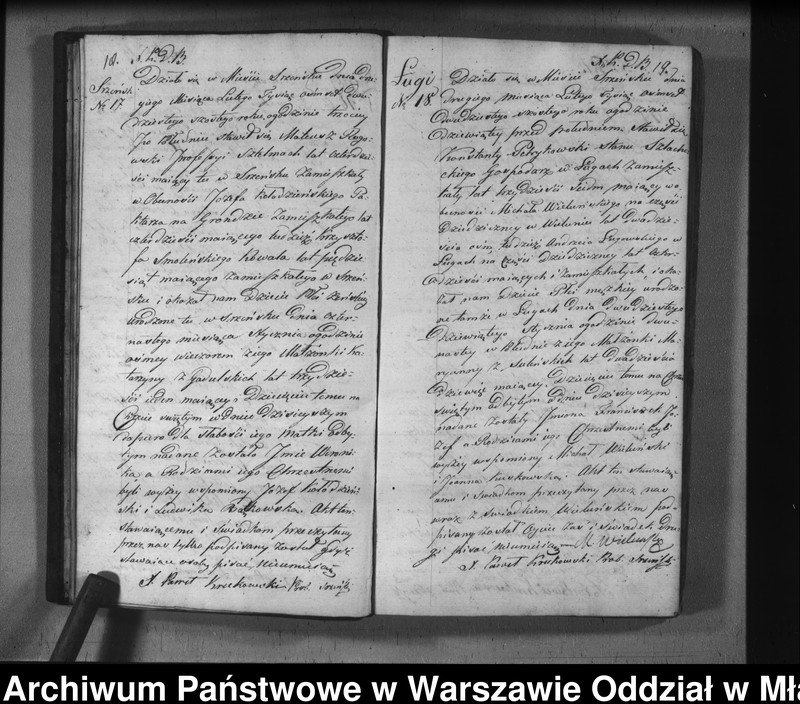 18.
Szreńsk
№ 17
Działo się w Mieście Szreńsku dnia dru-
giego Miesiąca Lutego Tysiąc ośmset dwu-
dziestego szóstego roku o godzinie trzeciey
po Południu stawił się Mateusz
Professyi lat czterdzie-
ści maiący tu w Szreńsku zamieszkały
w obecności Jozefa Kołodzieńskiego
na zamieszkałego lat
czterdzieści maiącego tudzież Krzyszto-
fa Smolińskiego Kowala lat pięćdzie-
siąt maiącego zamieszkałego w Szreń-
sku i okazał nam Dziecię Płci żeńskiey
urodzone tu w Szreńsku dnia czter-
nastego miesiąca Stycznia o godzinie
osmey wieczorem z iego Małżonki Ka-
tarzyny z lat trzydzie-
ści ieden maiącey. Dziecięciu temu na
Chrzcie świętym w dniu dzisieyszym
dopiero dla słabości iego Matki odby-
tym nadane zostało Imie Weroni-
ka a Rodzicami iego Chrzestnemi
byli wyżey wspomniony Jozef Kołodzień-
ski i Ludwika Akt ten
stawaiącemu i świadkom przeczytany
przez nas tylko podpisany został gdyż
stawaiące osoby pisać nieumieią
X Paweł Krzeckowski Szreński
19.
Ługi
№ 18.
Działo się w Mieście Szreńsku dnia
drugiego miesiąca Lutego Tysiąc ośmset
dwudziestego szóstego roku o godzinie
dziewiątey przed południem stawił się
Konstanty Petrykowski stanu Szlache-
ckiego Gospodarz w Ługach zamiesz-
kały lat trzydzieści siedm maiący w o-
becności Michała Wieluńskiego na części
Dziedziczney w lat dwadzie-
ścia ośm tudzież Andrzeia Ługowskiego w
Ługach na części dziedziczney lat czter-
dzieści maiących i zamieszkałych i oka-
zał nam dziecię Płci męzkiey urodzo-
ne tamże w Ługach dnia dwudziestego
dziewiątego Stycznia o godzinie dwu-
nastey w Południe z iego Małżonki Ma-
ryanny z lat dwadzieścia
dziewięć maiącey. Dziecięciu temu na Chrzcie
świętym odbytym w dniu dzisieyszym
nadane zostały Imiona Franciszek Jo-
zef a Rodzicami iego Chrzestnemi byli
wyżey wspomniony Michał Wieluński
i Joanna Akt ten stawaią-
cemu i świadkom przeczytany przez nas
wraz z świadkiem Wieluńskim pod-
pisany został Oyciec zaś i świadek dru-
gi pisać nieumieią M Wieluński
X Paweł Krzeckowski Szreński
Archiwum Państwowe w Warszawie Oddział w Mła